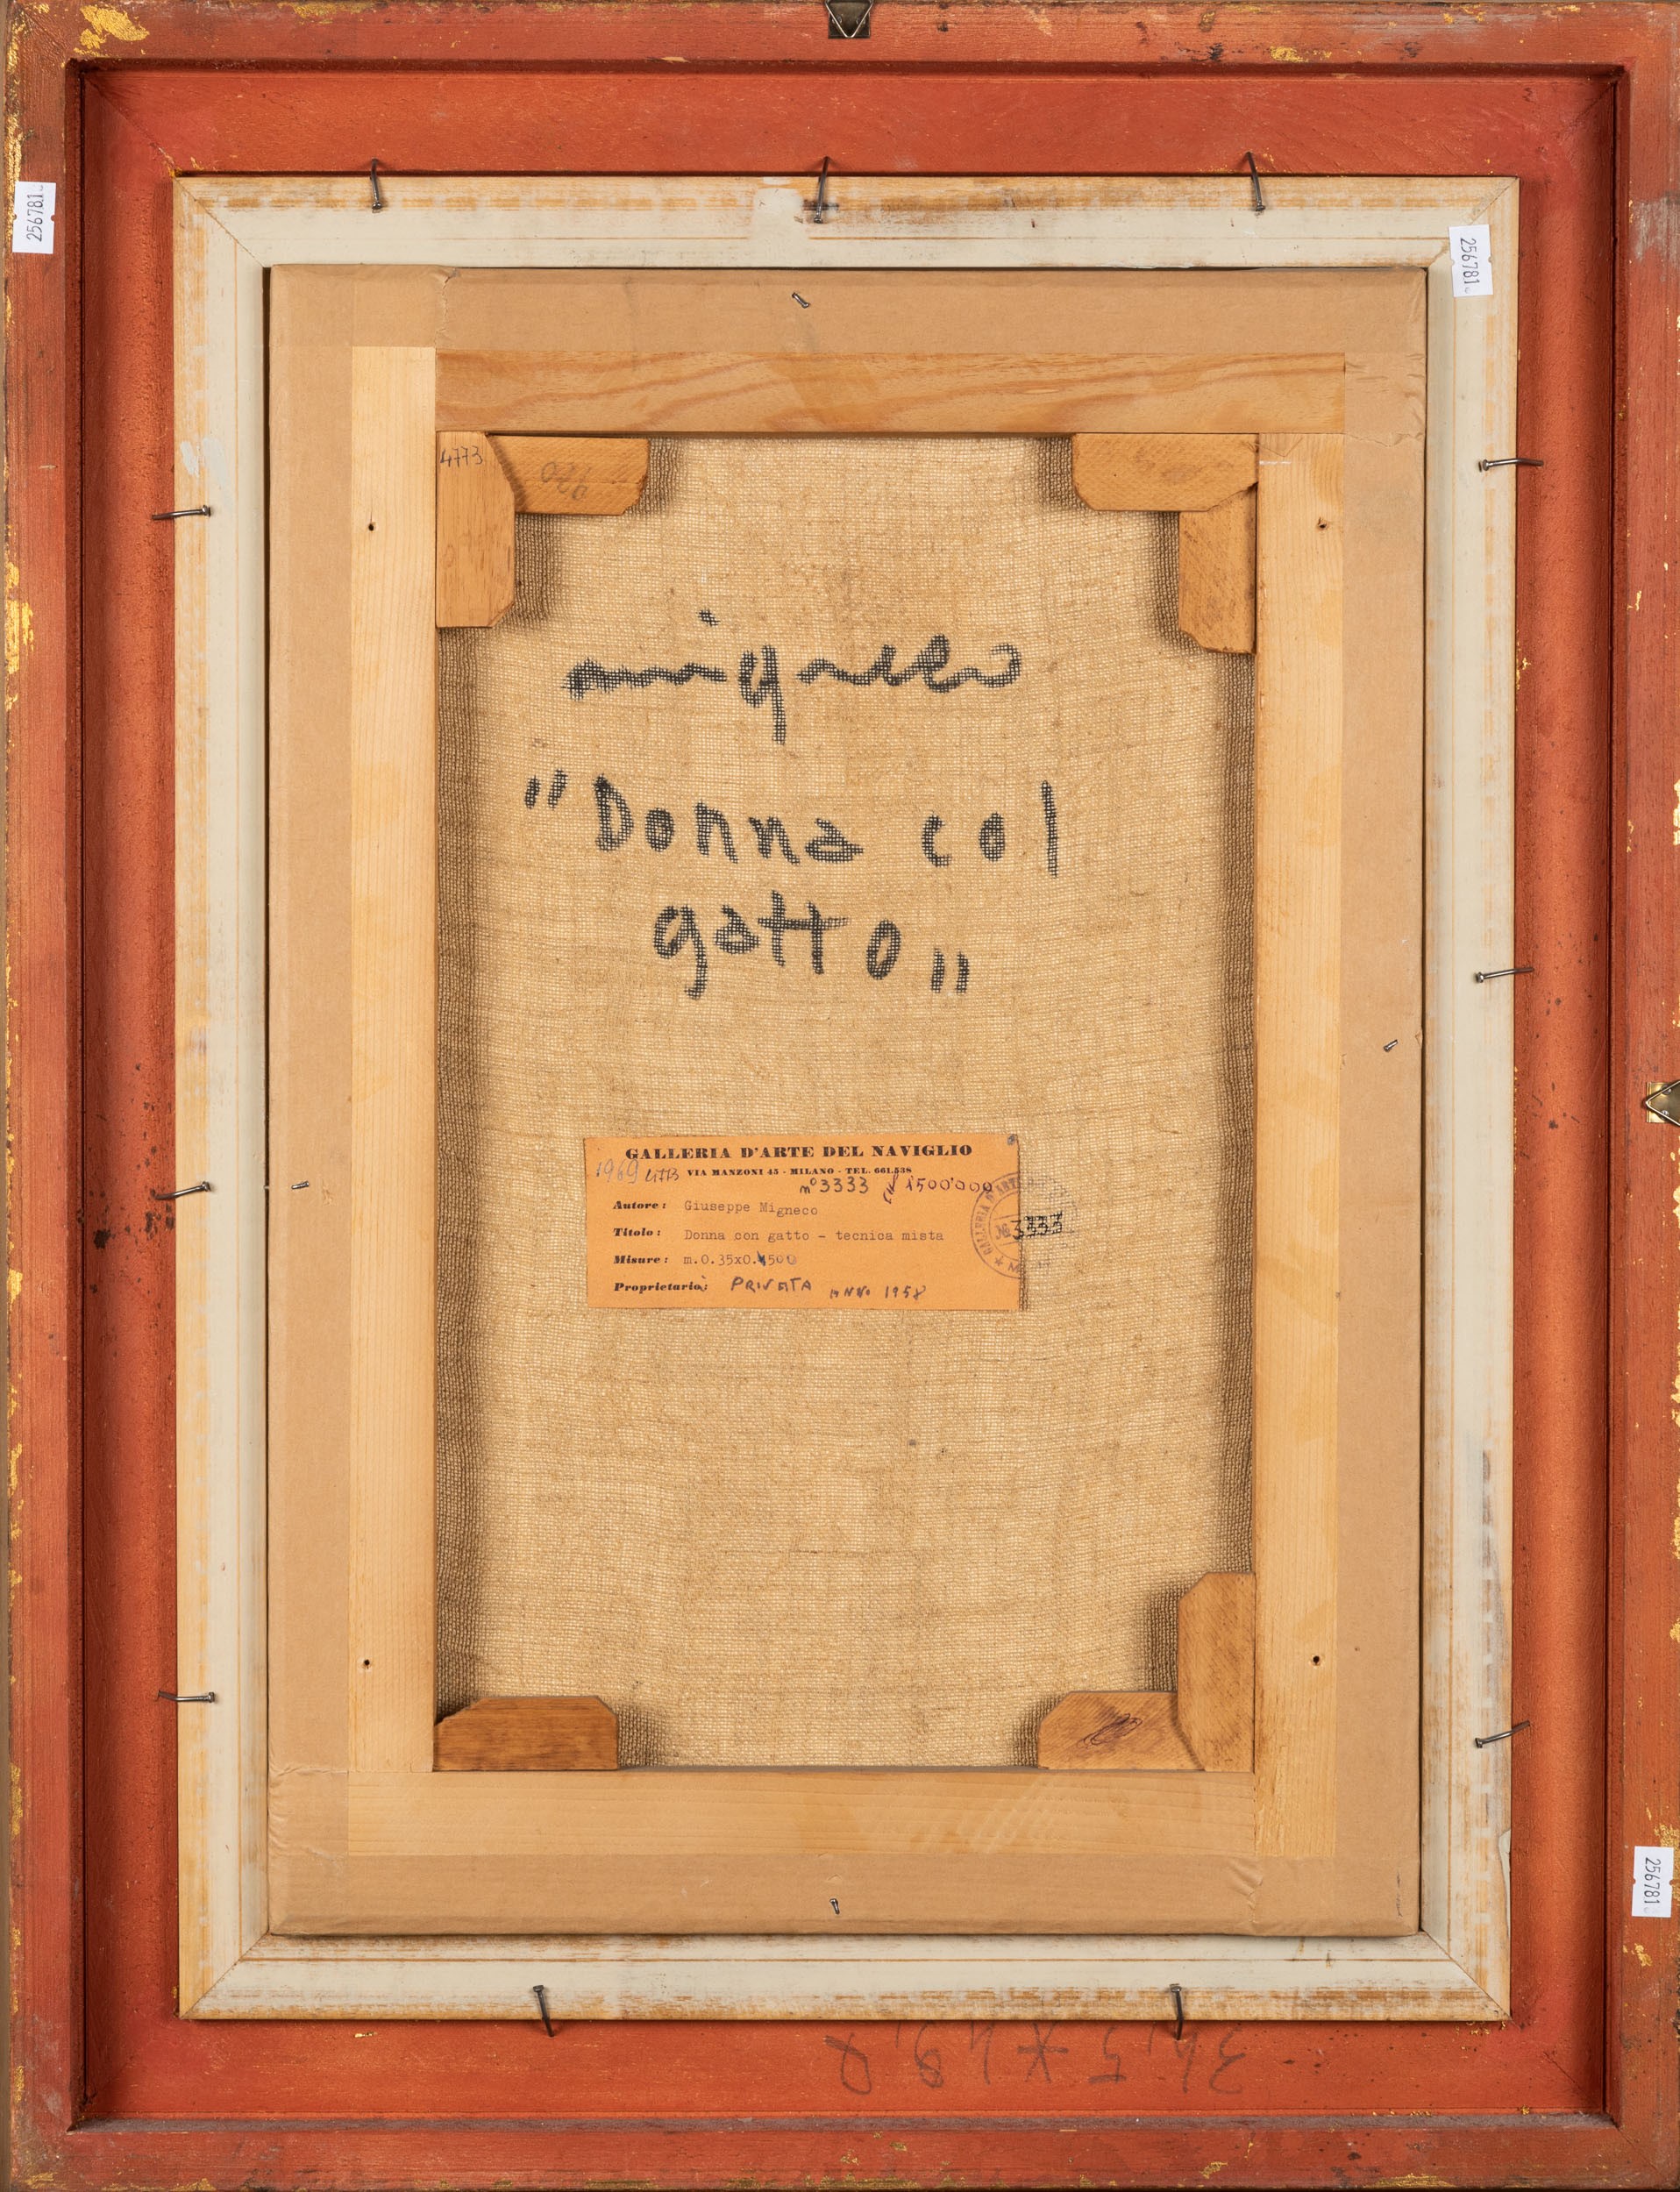 256781
256781
4773
migneco
"Donna col
gatto"
GALLERIA D'ARTE DEL NAVIGLIO
1969 4773 VIA MANZONI 45 - MILANO - TEL. 661.538
n° 3333 1500'000
Autore: Giuseppe Migneco
Titolo: Donna con gatto - tecnica mista
Misure: m.0.35x0.500
Proprietario: PRIVATA ANNO 1958
GALLERIA D'ARTE
№ 3333
256781
34,5 x 49,8